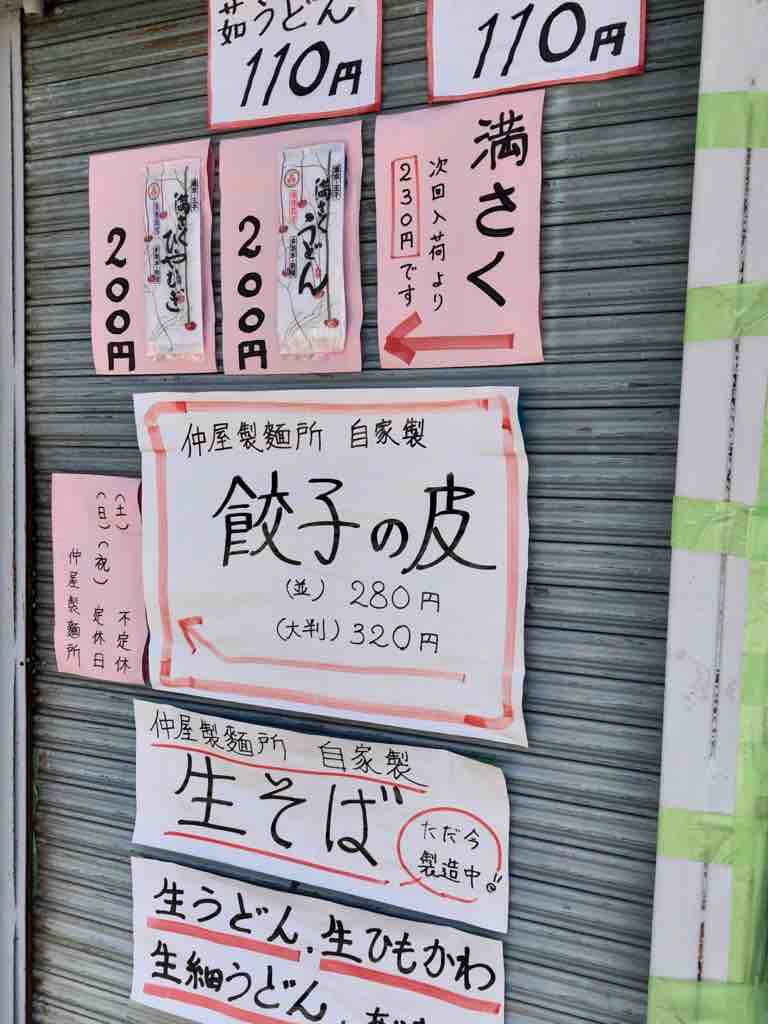 茹うどん
110円
110円
満さく
次回入荷より
230円です
満さく
うどん
200円
満さく
ひやむぎ
200円
仲屋製麺所 自家製
餃子の皮
(並) 280円
(大判) 320円
(土) 不定休
(日)(祝) 定休日
仲屋製麺所
仲屋製麺所 自家製
生そば
ただ今
製造中!!
生うどん.生ひもかわ
生細うどん.